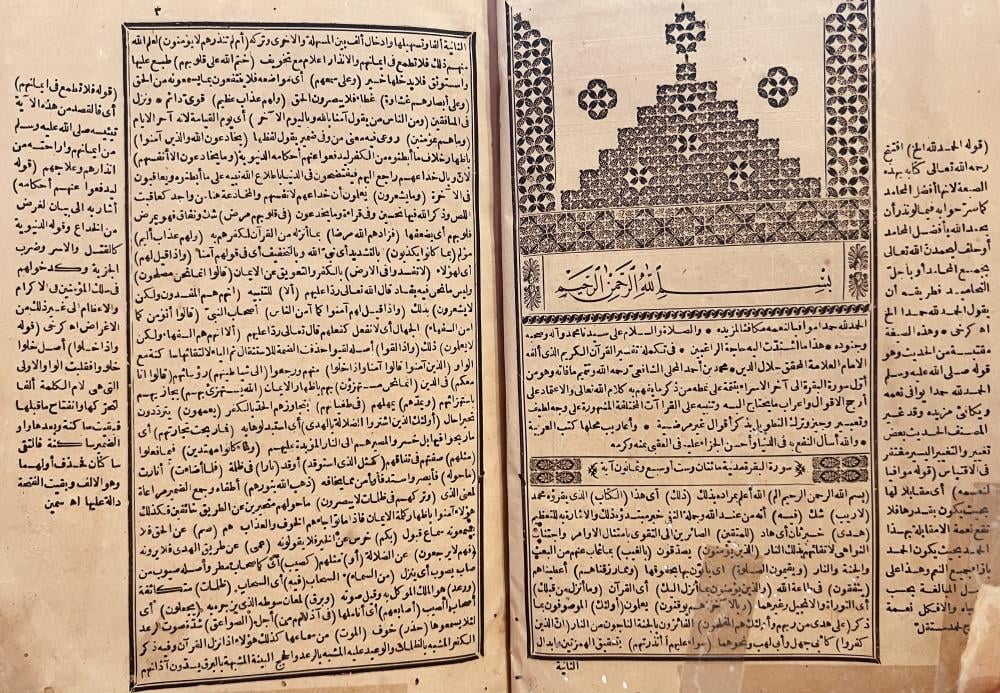 بسم الله الرحمن الرحيم
الحمد لله حمدا موافيا لنعمه مكافئا لمزيده * والصلاة والسلام على سيدنا محمد وآله وصحبه
وجنوده * هذا ما اشتدت اليه حاجة الراغبين * في تكملة تفسير القرآن الكريم الذي ألفه
الامام العلامة المحقق جلال الدين * محمد بن أحمد المحلي الشافعي رحمه الله وتتميم مافاته وهو من
أول سورة البقرة الى آخر الاسراء بتتمة على نمطه من ذكر ما يفهم به كلام الله تعالى والاعتماد على
أرجح الاقوال واعراب ما يحتاج اليه وتنبيه على القراآت المختلفة المشهورة على وجه لطيف
وتعبير وجيز وترك التطويل بذكر أقوال غير مرضية * وأعاريب محلها كتب العربية
* والله أسأل النفع به في الدنيا وأحسن الجزاء عليه في العقبى بمنه وكرمه
سورة البقرة مدنية مائتان وست أو سبع وثمانون آية
(بسم الله الرحمن الرحيم الم) الله أعلم بمراده بذلك (ذلك) أي هذا (الكتاب) الذي يقرؤه محمد
(لاريب) شك (فيه) أنه من عند الله وجملة النفي خبر مبتدؤه ذلك والاشارة به للتعظيم
(هدى) خبر ثان أي هاد (للمتقين) الصائرين الى التقوى بامتثال الاوامر واجتناب
النواهي لاتقائهم بذلك النار (الذين يؤمنون) يصدقون (بالغيب) بما غاب عنهم من البعث
والجنة والنار (ويقيمون الصلوة) أي يأتون بها بحقوقها (ومما رزقناهم) أعطيناهم
(ينفقون) في طاعة الله (والذين يؤمنون بما أنزل اليك) أي القرآن (وما أنزل من قبلك)
أي التوراة والانجيل وغيرهما (وبالآخرة هم يوقنون) يعلمون (أولئك) الموصوفون بما
ذكر (على هدى من ربهم وأولئك هم المفلحون) الفائزون بالجنة الناجون من النار (ان الذين
كفروا) كأبي جهل وأبي لهب ونحوهما (سواء عليهم أأنذرتهم) بتحقيق الهمزتين وابدال
الثانية
(قوله الحمد لله الخ) افتتح
رحمه الله تعالى كتابه بهذه
الصيغة لانها أفضل المحامد
كما صرحوا به فيما لو نذر أن
يحمد الله بأفضل المحامد
أو حلف ليحمدن الله تعالى
بجميع المحامد أو بأجل
التحاميد فطريقه أن
يقول الحمد لله حمدا الخ
اه كرخى * وهذه الصيغة
مقتبسة من الحديث وهو
قوله صلى الله عليه وسلم
الحمد لله حمدا يوافي نعمه
ويكافئ مزيده وقد غير
المصنف الحديث بعض
تغيير والتغيير اليسير مغتفر
في الاقتباس (قوله موافيا
لنعمه) أي مقابلا لها
بحيث يكون بقدرها فلا
تقع نعمة الا مقابلة بهذا
الحمد بحيث يكون الحمد
٣
الثانية ألفا وتسهيلها وادخال ألف بين المسهلة والاخرى وتركه (أم لم تنذرهم لا يؤمنون) لعلم الله
منهم ذلك فلا تطمع في ايمانهم والانذار اعلام مع تخويف (ختم الله على قلوبهم) طبع عليها
واستوثق فلا يدخلها خير (وعلى سمعهم) أي مواضعه فلا ينتفعون بما يسمعونه من الحق
(وعلى أبصارهم غشاوة) غطاء فلا يبصرون الحق (ولهم عذاب عظيم) قوي دائم * ونزل
في المنافقين (ومن الناس من يقول آمنا بالله وباليوم الآخر) أي يوم القيامة لانه آخر الايام
(وما هم بمؤمنين) روعي فيه معنى من وفي ضمير يقول لفظها (يخادعون الله والذين آمنوا)
باظهار خلاف ما أبطنوه من الكفر ليدفعوا عنهم أحكامه الدنيوية (وما يخادعون الا أنفسهم)
لان وبال خداعهم راجع اليهم فيفتضحون في الدنيا باطلاع الله نبيه على ما أبطنوه ويعاقبون
في الآخرة (وما يشعرون) يعلمون أن خداعهم لانفسهم والمخادعة هنا من واحد كعاقبت
اللص وذكر الله فيها تحسين وفي قراءة وما يخدعون (في قلوبهم مرض) شك ونفاق فهو يمرض
قلوبهم أي يضعفها (فزادهم الله مرضا) بما أنزله من القرآن لكفرهم به (ولهم عذاب أليم)
مؤلم (بما كانوا يكذبون) بالتشديد أي نبي الله وبالتخفيف أي في قولهم آمنا (واذا قيل لهم)
أي لهؤلاء (لا تفسدوا في الارض) بالكفر والتعويق عن الايمان (قالوا انما نحن مصلحون)
وليس ما نحن فيه بفساد قال الله تعالى ردا عليهم (ألا) للتنبيه (انهم هم المفسدون ولكن
لا يشعرون) بذلك (واذا قيل لهم آمنوا كما آمن الناس) أصحاب النبي (قالوا أنؤمن كما
آمن السفهاء) الجهال أي لا نفعل كفعلهم قال تعالى ردا عليهم (ألا انهم هم السفهاء ولكن
لا يعلمون) ذلك (واذا لقوا) أصله لقيوا حذفت الضمة للاستثقال ثم الياء لالتقائها ساكنة مع
الواو (الذين آمنوا قالوا آمنا واذا خلوا) منهم ورجعوا (الى شياطينهم) رؤسائهم (قالوا انا
معكم) في الدين (انما نحن مستهزؤن) بهم باظهار الايمان (الله يستهزئ بهم) يجازيهم
باستهزائهم (ويمدهم) يمهلهم (في طغيانهم) بتجاوزهم الحد بالكفر (يعمهون) يترددون
تحيرا حال (أولئك الذين اشتروا الضلالة بالهدى) أي استبدلوها به (فما ربحت تجارتهم) أي
ما ربحوا فيها بل خسروا لمصيرهم الى النار المؤبدة عليهم (وما كانوا مهتدين) فيما فعلوا
(مثلهم) صفتهم في نفاقهم (كمثل الذي استوقد) أوقد (نارا) في ظلمة (فلما أضاءت) أنارت
(ماحوله) فأبصر واستدفأ وأمن مما يخافه (ذهب الله بنورهم) أطفأه وجمع الضمير مراعاة
لمعنى الذي (وتركهم في ظلمات لا يبصرون) ماحولهم متحيرين عن الطريق خائفين فكذلك
هؤلاء آمنوا باظهار كلمة الايمان فاذا ماتوا جاءهم الخوف والعذاب هم (صم) عن الحق فلا
يسمعونه سماع قبول (بكم) خرس عن الخير فلا يقولونه (عمي) عن طريق الهدى فلا يرونه
(فهم لا يرجعون) عن الضلالة (أو) مثلهم (كصيب) أي كأصحاب مطر وأصله صيوب من
صاب يصوب أي ينزل (من السماء) السحاب (فيه) أي السحاب (ظلمات) متكاثفة
(ورعد) هو الملك الموكل به وقيل صوته (وبرق) لمعان سوطه الذي يزجره به (يجعلون) أي
أصحاب الصيب (أصابعهم) أي أناملها (في آذانهم من) أجل (الصواعق) شدة صوت الرعد
لئلا يسمعوها (حذر) خوف (الموت) من سماعها كذلك هؤلاء اذا نزل القرآن وفيه ذكر
الكفر المشبه بالظلمات والوعيد عليه المشبه بالرعد والحجج البينة المشبهة بالبرق يسدون آذانهم
(قوله فلا تطمع في ايمانهم)
أي فالقصد من هذه الآية
تيئيسه صلى الله عليه وسلم
من ايمانهم واراحته من
انذارهم وعلاجهم (قوله
ليدفعوا عنهم أحكامه)
أشار به الى بيان لغرض
من الخداع وقوله الدنيوية
كالقتل والاسر وضرب
الجزية وكدخولهم
في سلك المؤمنين في الاكرام
والاعظام الى غير ذلك من
الاغراض اه كرخى (قوله
واذا خلوا) أصل خلوا
خلووا فقلبت الواو الاولى
التي هي لام الكلمة ألفا
لتحركها وانفتاح ما قبلها
فبقيت ساكنة وبعدها واو
الضمير ساكنة فالتقى
ساكنان فحذف أولهما
وهو الالف وبقيت الفتحة
دالة عليها اه سمين